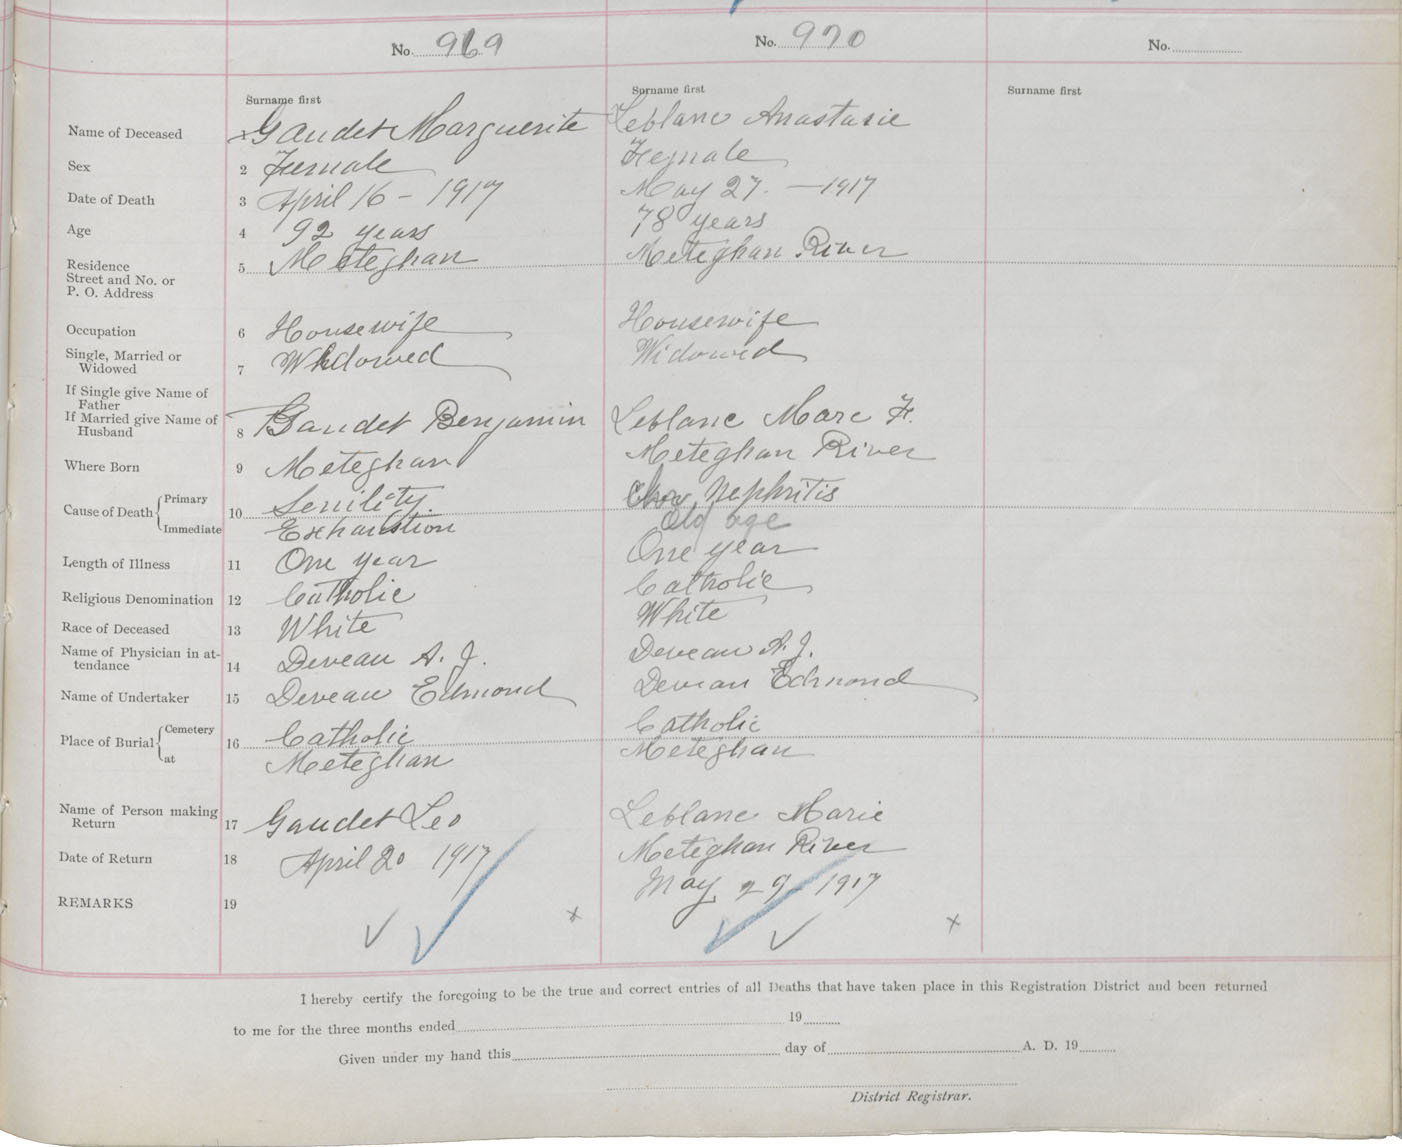 No. 969 No. 970 No.
Surname first Surname first Surname first
Name of Deceased 1 Gaudet Marguerite Leblanc Anastasie
Sex 2 Female Female
Date of Death 3 April 16 - 1917 May 27. - 1917
Age 4 92 years 78 years
Residence 5 Meteghan Meteghan River
Street and No. or
P. O. Address
Occupation 6 Housewife Housewife
Single, Married or
Widowed 7 Widowed Widowed
If Single give Name of
Father
If Married give Name of
Husband 8 Gaudet Benjamin Leblanc Marc F.
Where Born 9 Meteghan Meteghan River
Cause of Death { Primary 10 Senility. Chro Nephritis
Immediate Exhaustion Old age
Length of Illness 11 One year One year
Religious Denomination 12 Catholic Catholic
Race of Deceased 13 White White
Name of Physician in at-
tendance 14 Deveau A. J. Deveau A. J.
Name of Undertaker 15 Deveau Edmond Deveau Edmond
Place of Burial { Cemetery 16 Catholic Catholic
at Meteghan Meteghan
Name of Person making
Return 17 Gaudet Leo Leblanc Marie
Meteghan River
Date of Return 18 April 20 1917 May 29 - 1917
REMARKS 19
I hereby certify the foregoing to be the true and correct entries of all Deaths that have taken place in this Registration District and been returned
to me for the three months ended 19
Given under my hand this day of A. D. 19
District Registrar.